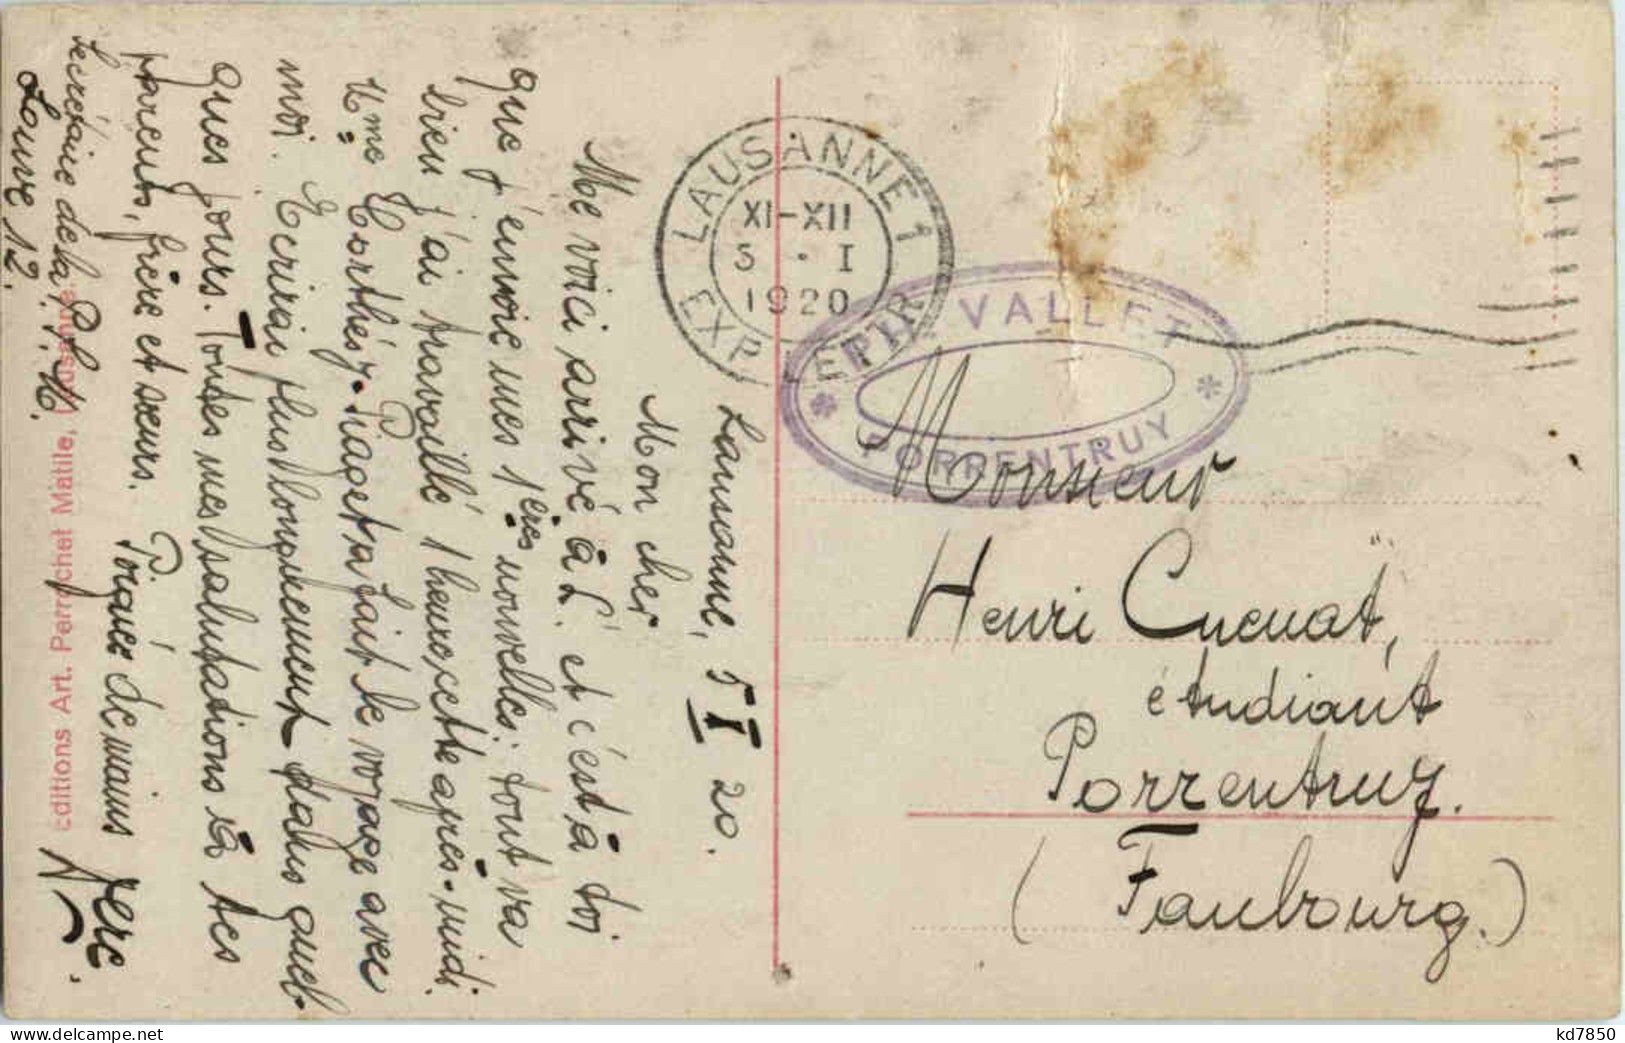 Lausanne, 5 I 20.
Mon cher
Me voici arrivé à L. et c'est à toi
que j'envoie mes 1ères nouvelles; tout va
bien j'ai travaillé 1 heure cette après-midi.
Mme Corthésy-Piaget a fait le voyage avec
moi. Ecrirai plus longuement dans quel-
ques jours. Toutes mes salutations à tes
parents, frère et sœurs. Poignée de mains
Secrétaire de la P.
Louve 12.
Editions Art. Perrochet Matile, Lausanne.
LAUSANNE 1
XI-XII
5 · I
1920
EXP. LETTR.
VALLET
* PORRENTRUY *
Monsieur
Henri Cuenat,
étudiant
Porrentruy.
(Faubourg.)
kd7850